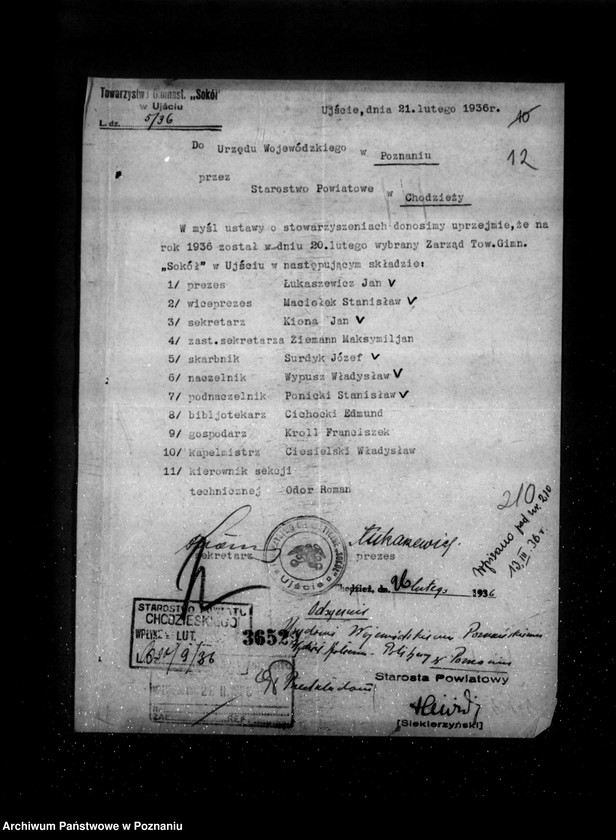 Towarzystwo Gimnast. „Sokół”
w Ujściu
L. dz. 5/36
Ujście, dnia 21. lutego 1936r.
10
12
Do Urzędu Wojewódzkiego w Poznaniu
przez
Starostwo Powiatowe w Chodzieży
W myśl ustawy o stowarzyszeniach donosimy uprzejmie, że na
rok 1936 został w dniu 20. lutego wybrany Zarząd Tow.Gimn.
„Sokół” w Ujściu w następującym składzie:
1/ prezes Łukaszewicz Jan V
2/ wiceprezes Maciołek Stanisław V
3/ sekretarz Kiona Jan V
4/ zast.sekretarza Ziemann Maksymiljan
5/ skarbnik Surdyk Józef V
6/ naczelnik Wypusz Władysław V
7/ podnaczelnik Ponicki Stanisław V
8/ bibljotekarz Cichocki Edmund
9/ gospodarz Kroll Franciszek
10/ kapelmistrz Ciesielski Władysław
11/ kierownik sekcji
technicznej Odor Roman
210
Wpisano pod nr. 210
13.III.36 r.
Łukaszewicz.
sekretarz prezes
Ujście
Chodzież, dn. 26 lutego 1936
STAROSTWO POWIATU
CHODZIESKIEGO
WPŁYN. LUT.
L. 9/36
36523
Urzędowi Wojewódzkiemu Poznańskiemu
w Poznaniu
Przekładam
Starosta Powiatowy
[Siekierzyński]
Archiwum Państwowe w Poznaniu